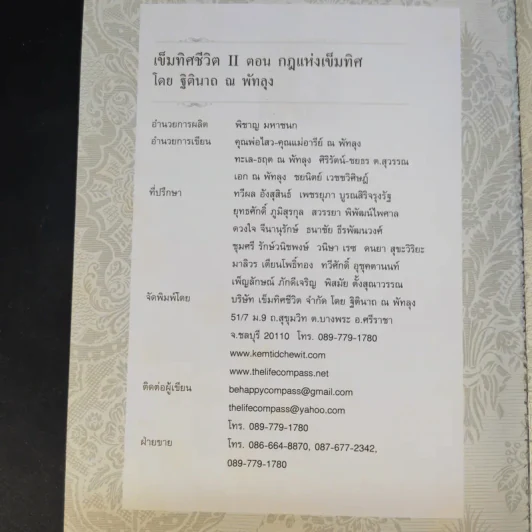 เข็มทิศชีวิต II ตอน กฎแห่งเข็มทิศ
โดย ฐิตินาถ ณ พัทลุง
อำนวยการผลิต พิชาญ มหาชนก
อำนวยการเขียน คุณพ่อไสว-คุณแม่อารีย์ ณ พัทลุง
ทะเล-ธฤต ณ พัทลุง ศิริรัตน์-ชยธร ต.สุวรรณ
เอก ณ พัทลุง ชยนิตย์ เวชชวิศิษฎ์
ที่ปรึกษา ทวีผล อังสุสินธ์ เพชรยุภา บูรณสิริจรุงรัฐ
ยุทธศักดิ์ ภูมิสุรกุล สวรรยา พิพัฒน์ไพศาล
ดวงใจ จีนานุรักษ์ ธนาชัย ธีรพัฒนวงศ์
ชุมศรี รักษ์วนิชพงษ์ วนิษา เรซ ดนยา สุขะวิริยะ
มาลิวร เตียนโพธิ์ทอง ทวีศักดิ์ อุชุคตานนท์
เพ็ญลักษณ์ ภักดีเจริญ พิสมัย ตั้งสุณาวรรณ
จัดพิมพ์โดย บริษัท เข็มทิศชีวิต จำกัด โดย ฐิตินาถ ณ พัทลุง
51/7 ม.9 ถ.สุขุมวิท ต.บางพระ อ.ศรีราชา
จ.ชลบุรี 20110 โทร. 089-779-1780
www.kemtidchewit.com
www.thelifecompass.net
ติดต่อผู้เขียน behappycompass@gmail.com
thelifecompass@yahoo.com
โทร. 089-779-1780
ฝ่ายขาย โทร. 086-664-8870, 087-677-2342,
089-779-1780